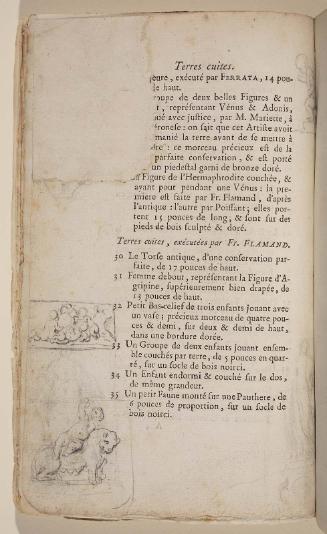 Terres cuites.
, exécuté par FERRATA, 14 pou-
haut.
de deux belles Figures & un
, représentant Vénus & Adonis,
avec justice, par M. Mariette, à
: on sait que cet Artiste avoit
manié la terre avant de se mettre à
: ce morceau précieux est de la
parfaite conservation, & est porté
un piedestal garni de bronze doré.
Figure de l'Hermaphrodite couchée, &
ayant pour pendant une Vénus : la pre-
miere est faite par Fr. Flamand, d'après
l'antique : l'autre par Poissant; elles por-
tent 15 pouces de long, & sont sur des
pieds de bois sculpté & doré.
Terres cuites, exécutées par Fr. FLAMAND.
30 Le Torse antique, d'une conservation par-
faite, de 17 pouces de haut.
31 Femme debout, représentant la Figure d'A-
gripine, supérieurement bien drapée, de
13 pouces de haut.
32 Petit Bas-relief de trois enfants jouant avec
un vase; précieux morceau de quatre pou-
ces & demi, sur deux & demi de haut,
dans une bordure dorée.
33 Un Groupe de deux enfants jouant ensem-
ble couchés par terre, de 5 pouces en quar-
ré, sur un socle de bois noirci.
34 Un Enfant endormi & couché sur le dos,
de même grandeur.
35 Un petit Faune monté sur une Panthere, de
6 pouces de proportion, sur un socle de
bois noirci.